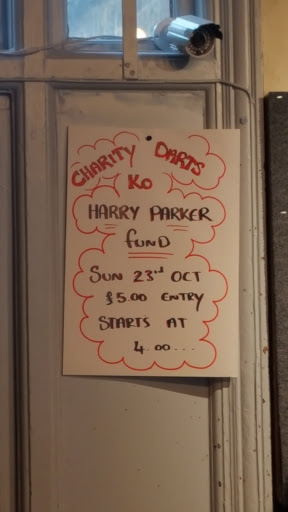 CHARITY DARTS
KO
HARRY PARKER
FUND
SUN 23rd OCT
£5.00 ENTRY
STARTS AT
4.00...